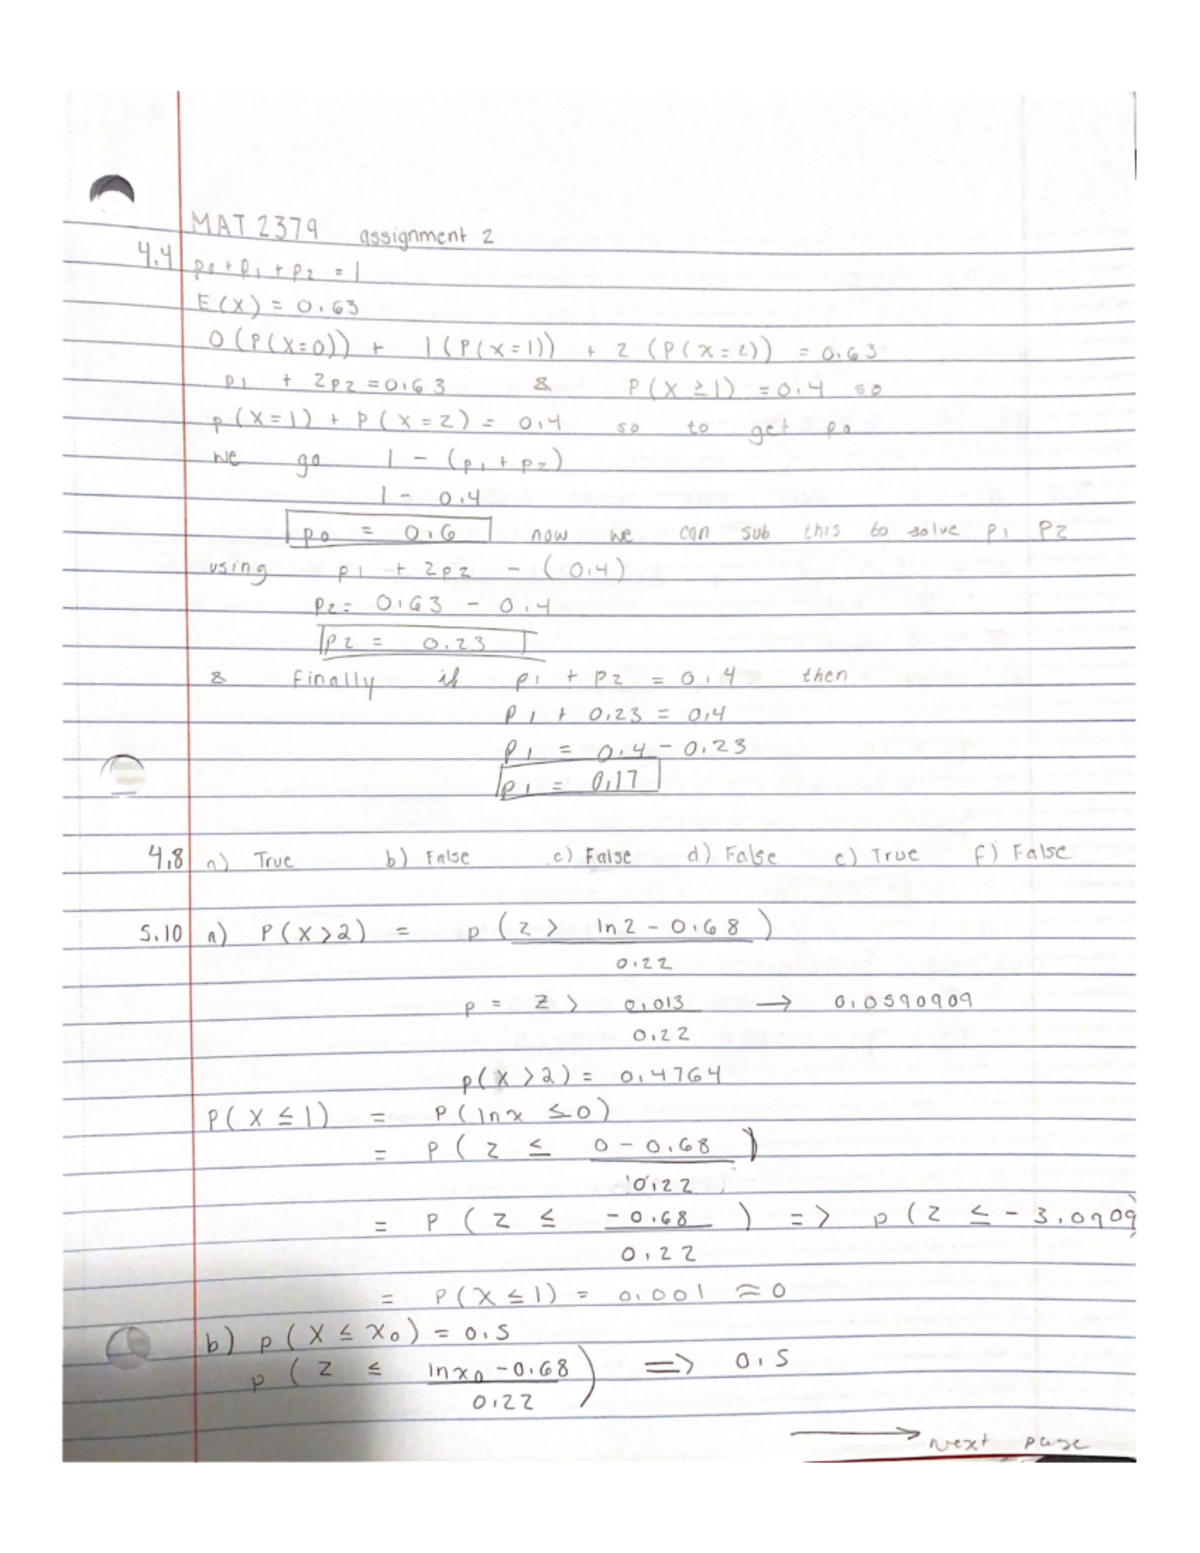 MAT 2379 assignment 2
4.4 p0 + p1 + p2 = 1
E(X) = 0.63
0(P(X=0)) + 1(P(X=1)) + 2(P(X=2)) = 0.63
p1 + 2p2 = 0.63 & P(X ≥ 1) = 0.4 so
p(X=1) + P(X=2) = 0.4 so to get p0
we go 1 - (p1 + p2)
1 - 0.4
p0 = 0.6 now we can sub this to solve p1 p2
using p1 + 2p2 - (0.4)
p2 = 0.63 - 0.4
p2 = 0.23
& Finally if p1 + p2 = 0.4 then
p1 + 0.23 = 0.4
p1 = 0.4 - 0.23
p1 = 0.17
4.8 a) True b) False c) False d) False e) True f) False
5.10 a) P(X>2) = p(z > ln2 - 0.68)
0.22
p = z > 0.013 → 0.0590909
0.22
p(X>2) = 0.4764
P(X ≤ 1) = P(lnx ≤ 0)
= P(z ≤ 0 - 0.68)
0.22
= P(z ≤ -0.68) => p(z ≤ -3.0909)
0.22
= P(X ≤ 1) = 0.001 ≈ 0
b) p(X ≤ x0) = 0.5
p(z ≤ lnx0 - 0.68) => 0.5
0.22
→ Next page